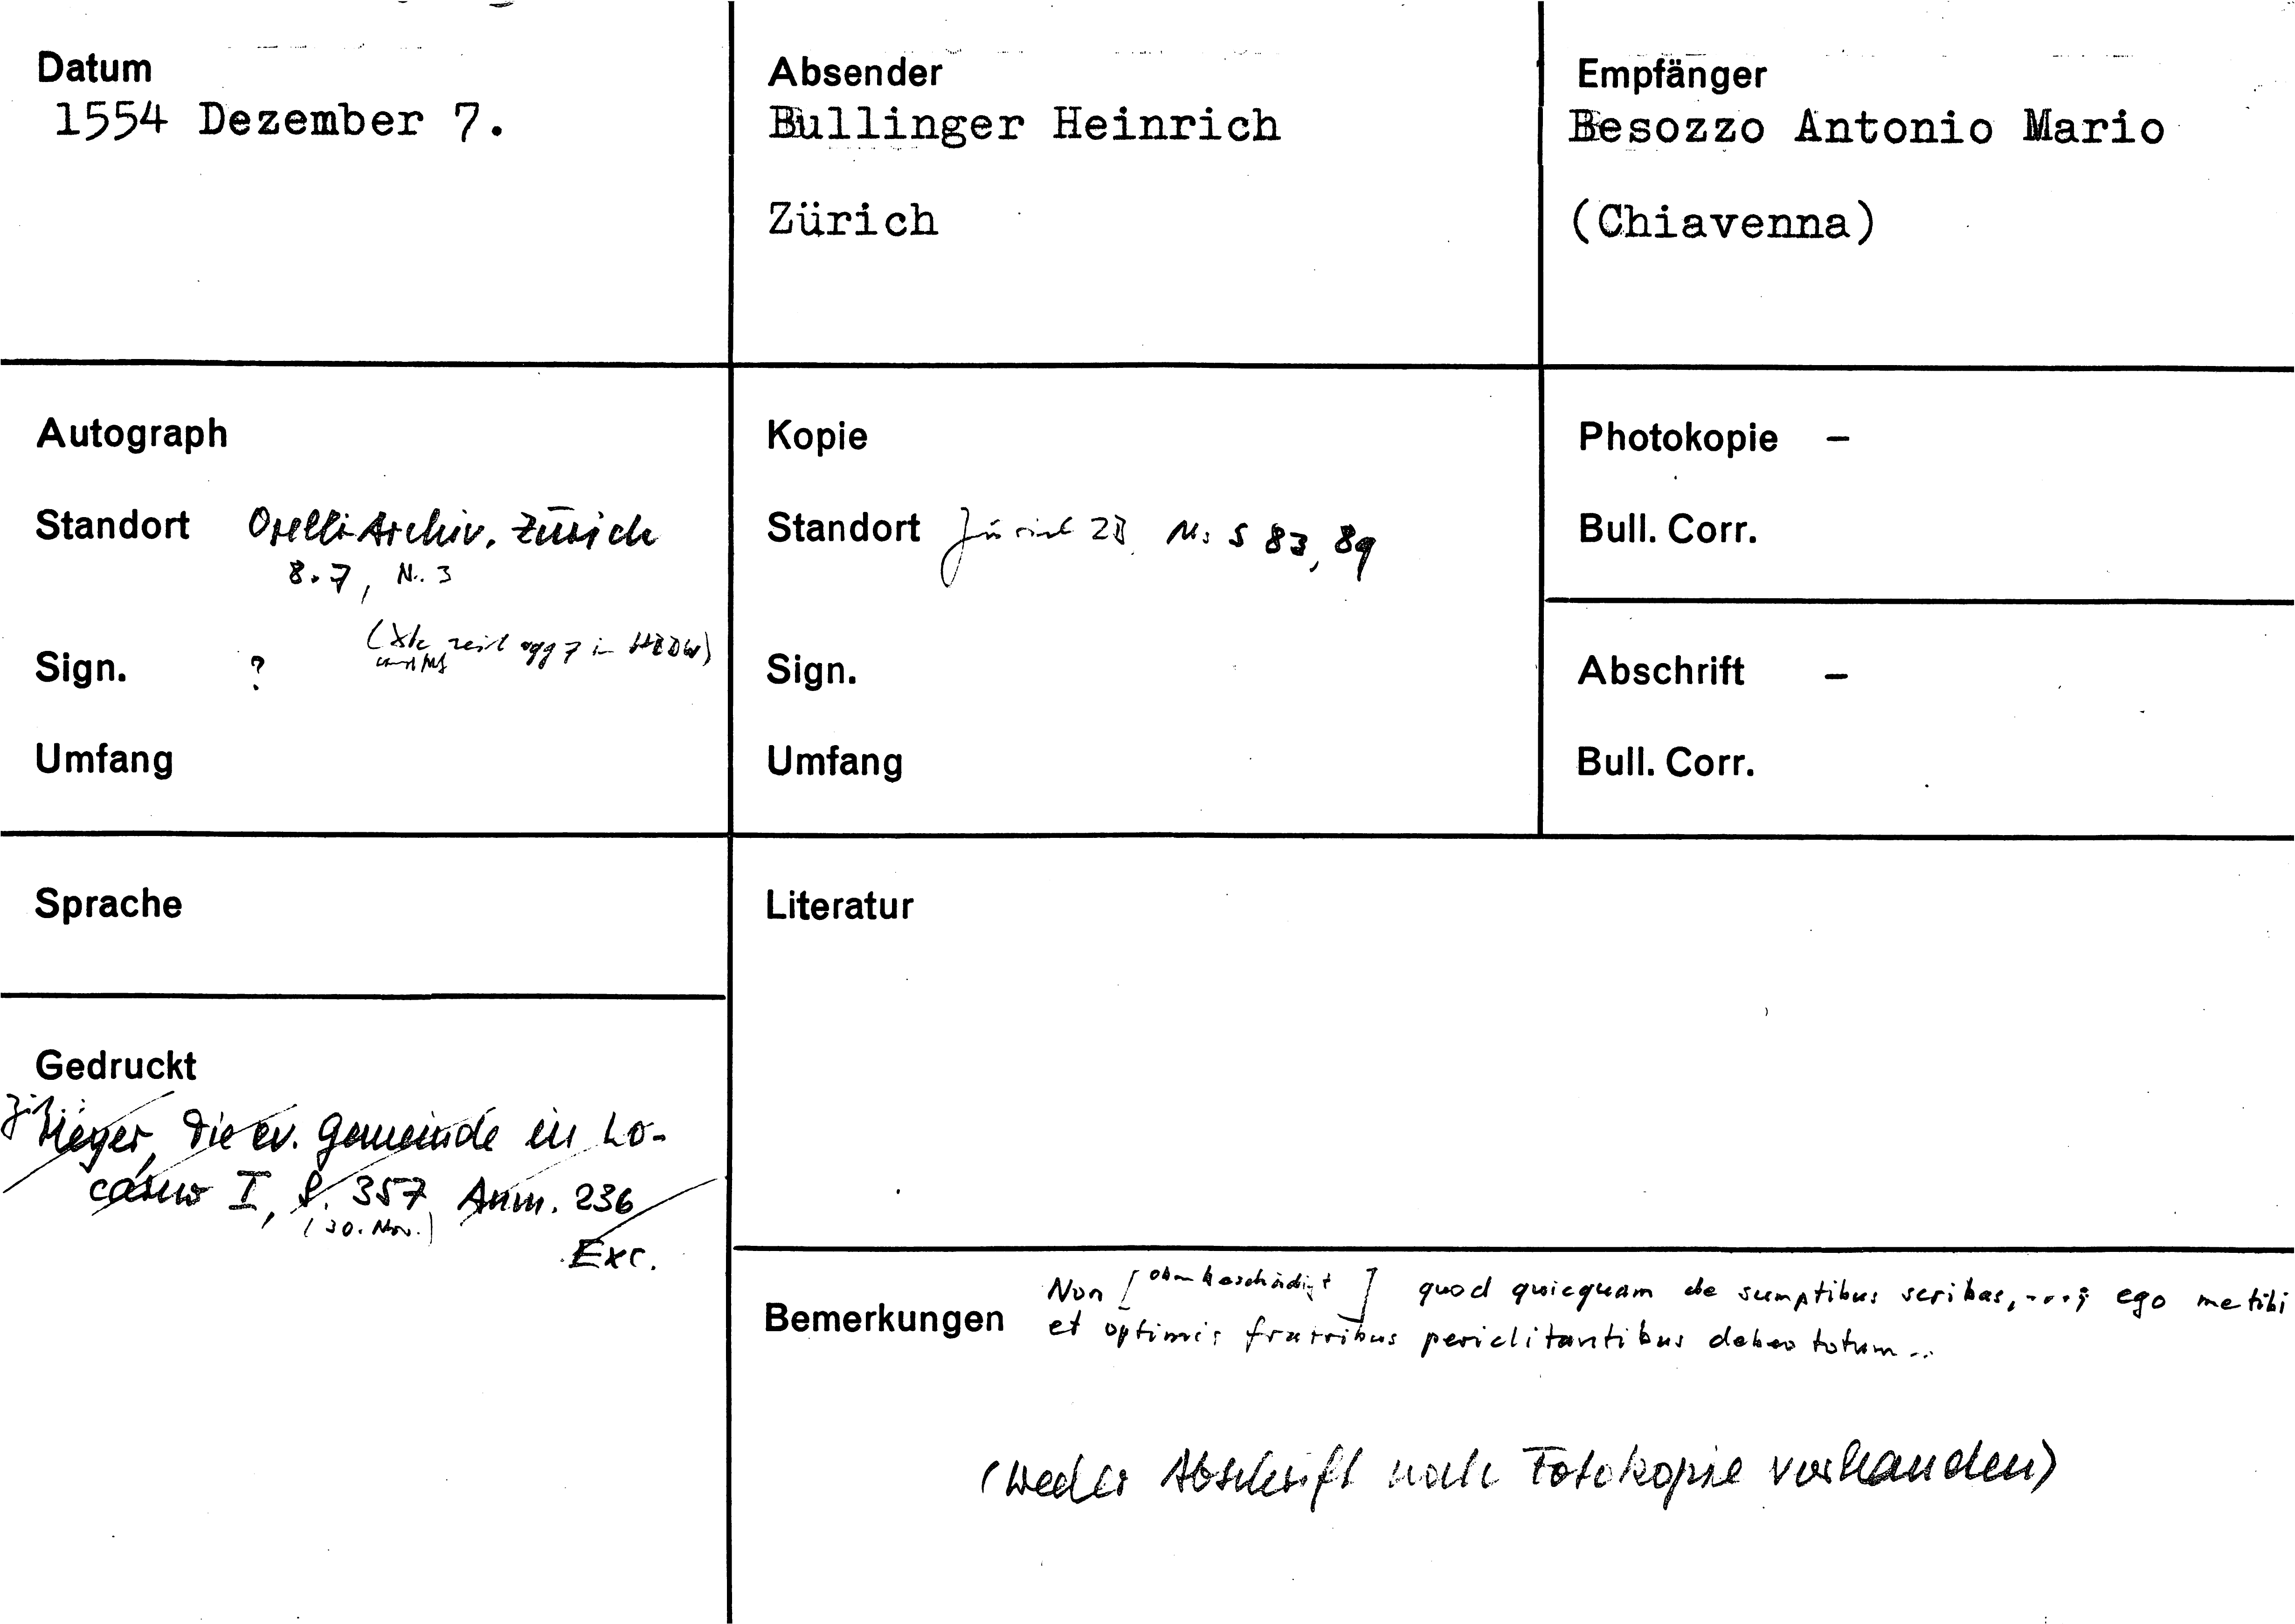 Datum
1554 Dezember 7.
Absender
Bullinger Heinrich
Zürich
Empfänger
Besozzo Antonio Mario
(Chiavenna)
Autograph
Standort Orelli-Archiv, Zürich
8.7, Nr. 3
Sign. ?
Umfang
Kopie
Standort Zürich ZB Ms S 83, 89
Sign.
Umfang
Photokopie –
Bull. Corr.
Abschrift –
Bull. Corr.
Sprache
Gedruckt
Meyer, Die ev. Gemeinde in Lo-
carno I, S. 357 Anm. 236
(30. Nov.)
Exc.
Literatur
Bemerkungen
Non [oben beschädigt] quod quicquam de sumptibus scribas, ...; ego me tibi
et optimis fratribus periclitantibus debeo totum ..
(weder Abschrift noch Fotokopie vorhanden)